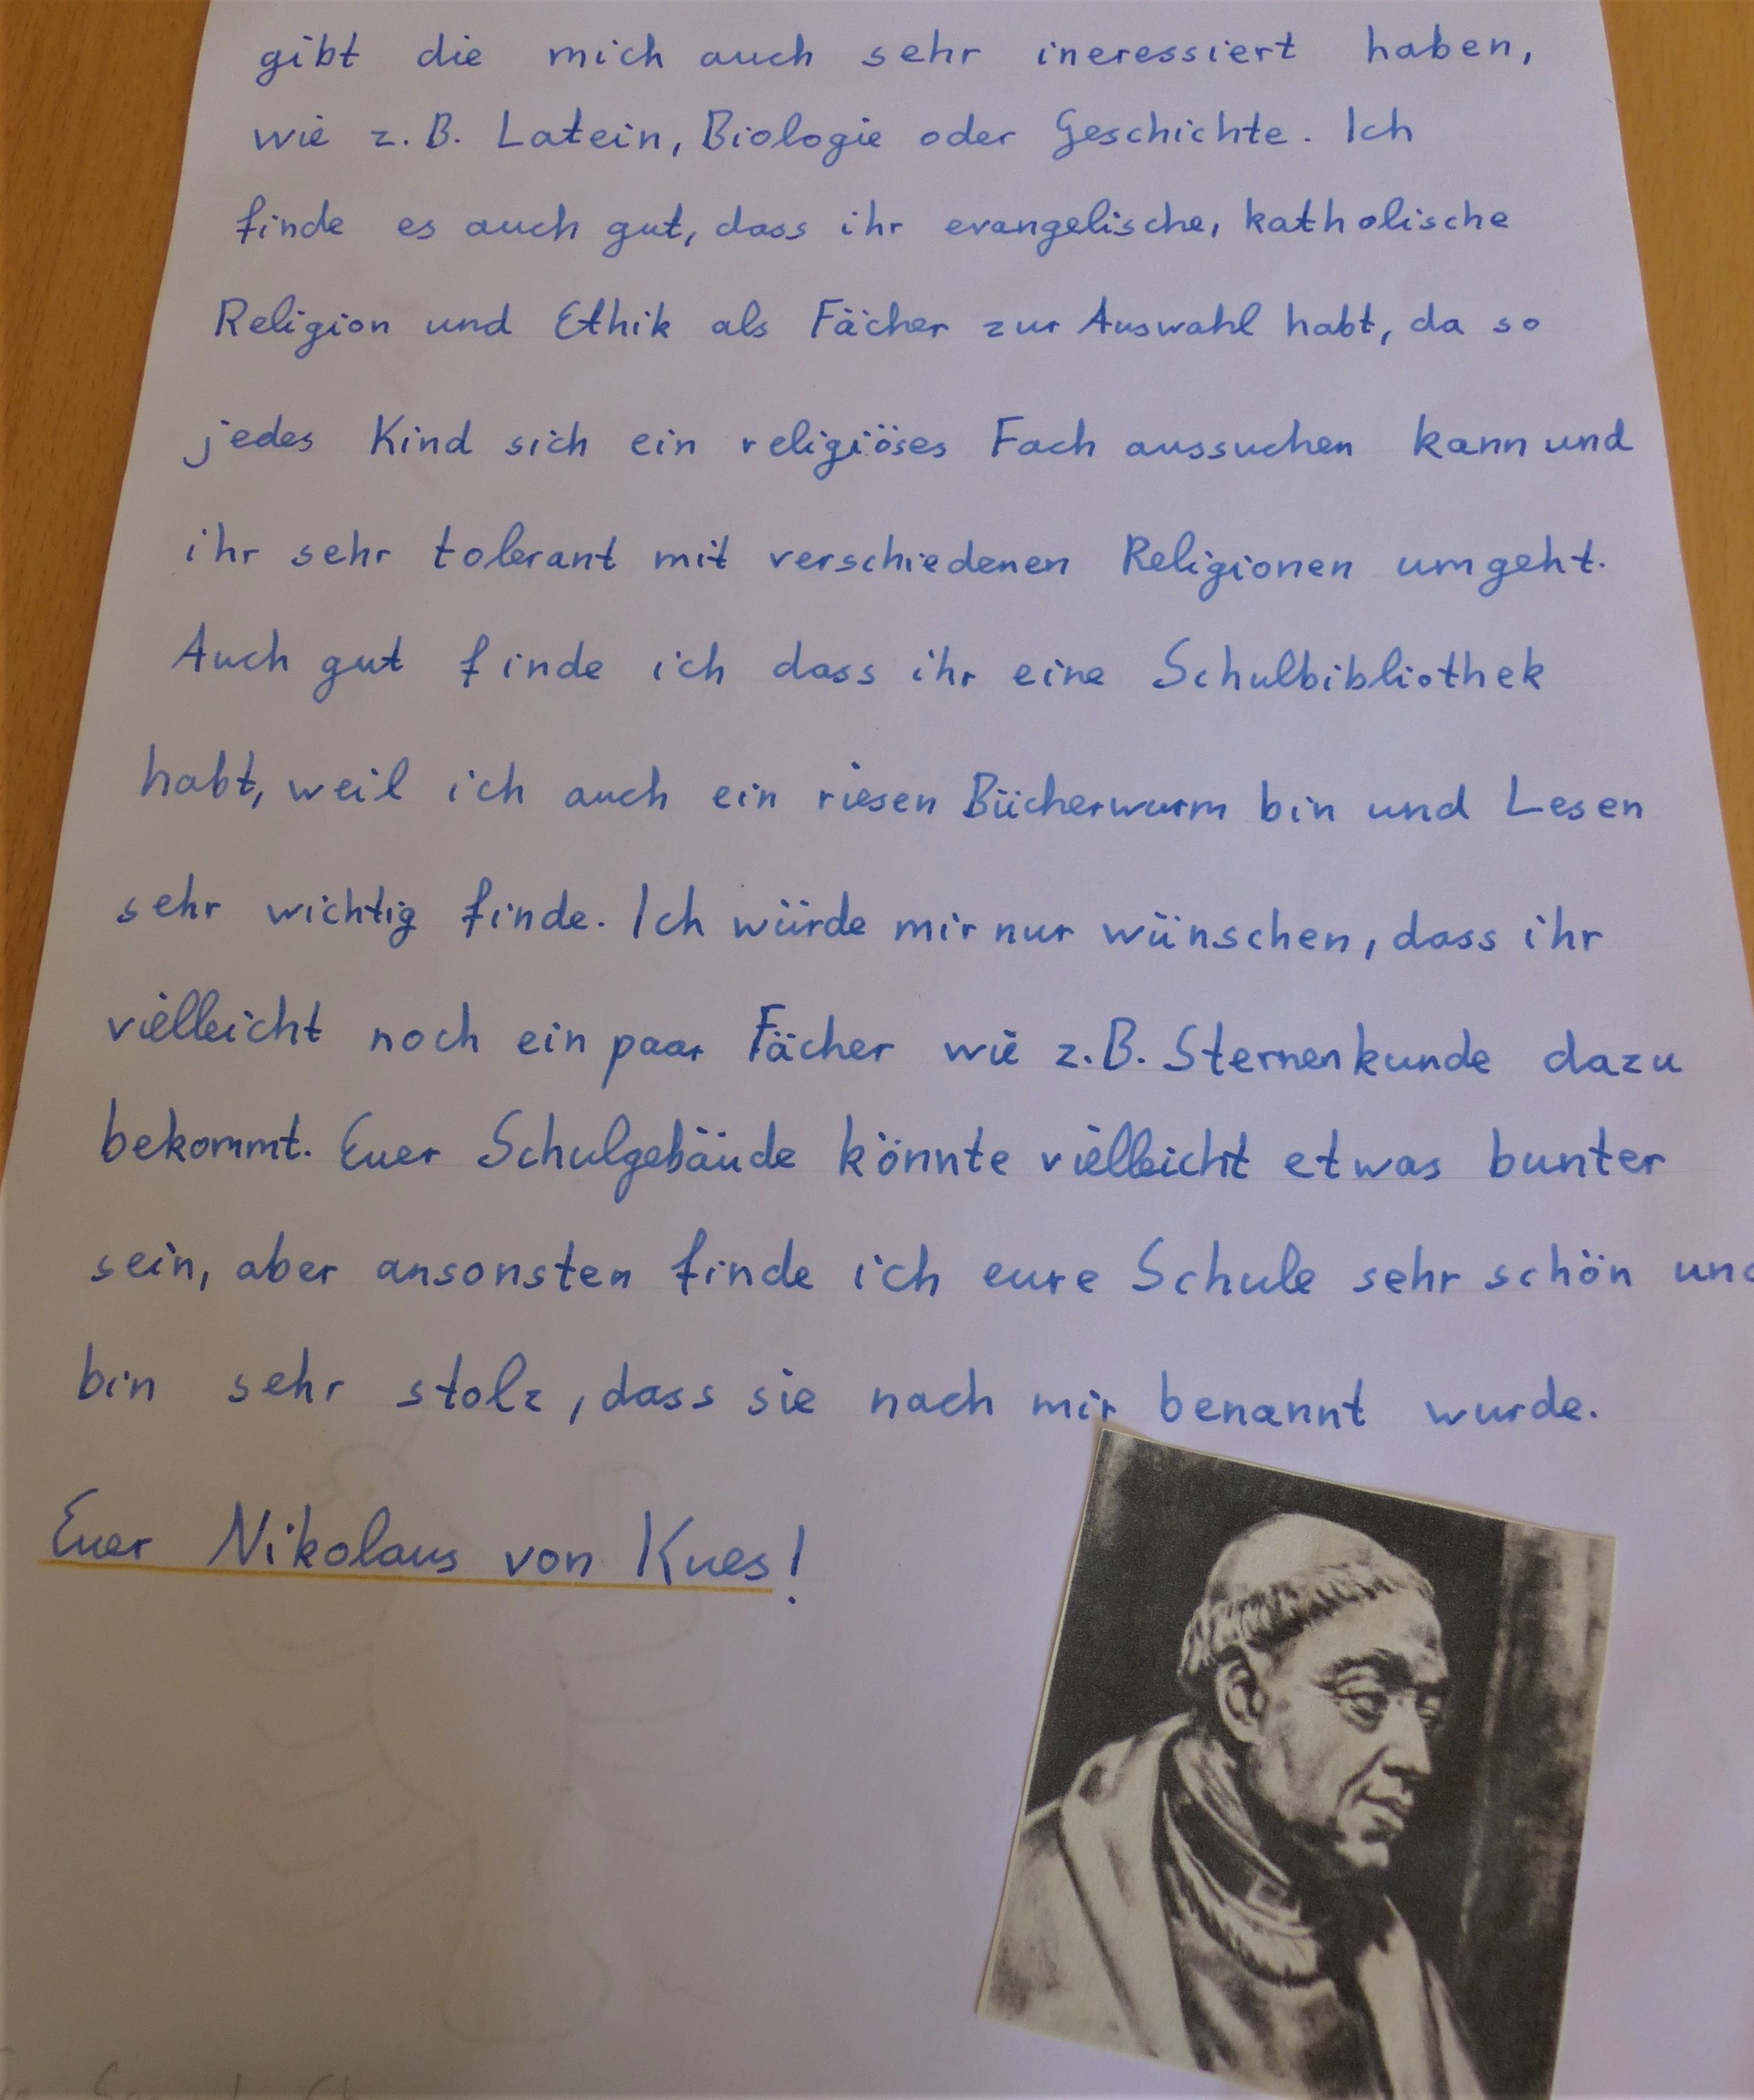 gibt die mich auch sehr ineressiert haben,
wie z.B. Latein, Biologie oder Geschichte. Ich
finde es auch gut, dass ihr evangelische, katholische
Religion und Ethik als Fächer zur Auswahl habt, da so
jedes Kind sich ein religiöses Fach aussuchen kann und
ihr sehr tolerant mit verschiedenen Religionen umgeht.
Auch gut finde ich dass ihr eine Schulbibliothek
habt, weil ich auch ein riesen Bücherwurm bin und Lesen
sehr wichtig finde. Ich würde mir nur wünschen, dass ihr
vielleicht noch ein paar Fächer wie z.B. Sternenkunde dazu
bekommt. Euer Schulgebäude könnte vielleicht etwas bunter
sein, aber ansonsten finde ich eure Schule sehr schön und
bin sehr stolz, dass sie nach mir benannt wurde.
Euer Nikolaus von Kues!